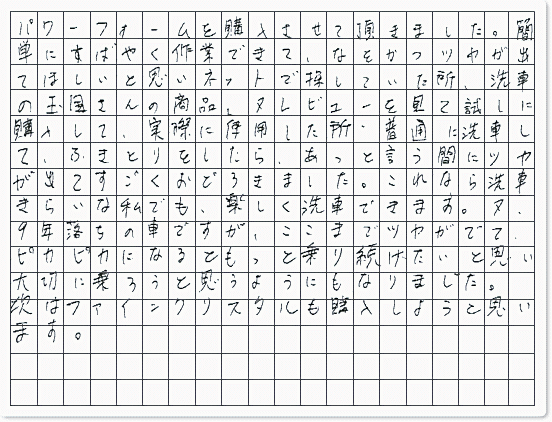 パワーフォームを購入させて頂きました。簡
単にすばやく作業できて、なおかつツヤが出
てほしいと思いネットで探していた所、洗車
の王国さんの商品、タレビューを見て試しに
購入して、実際に使用した所・普通に洗車し
て、ふきとりをしたら、あっと言う間にツヤ
が出てすごくおどろきました。これなら洗車
きらいな私でも、楽しく洗車できます。又、
9年落ちの車ですが、ここまでツヤがでて、
ピカピカになるともっと乗り続けたいと思い
大切に乗ろうと思うようにもなりました。
次はファインクリスタルも購入しようと思い
ます。